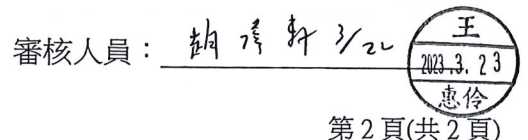 審核人員：胡 軒 3/22
王
2023.3.23
惠伶
第2頁(共2頁)